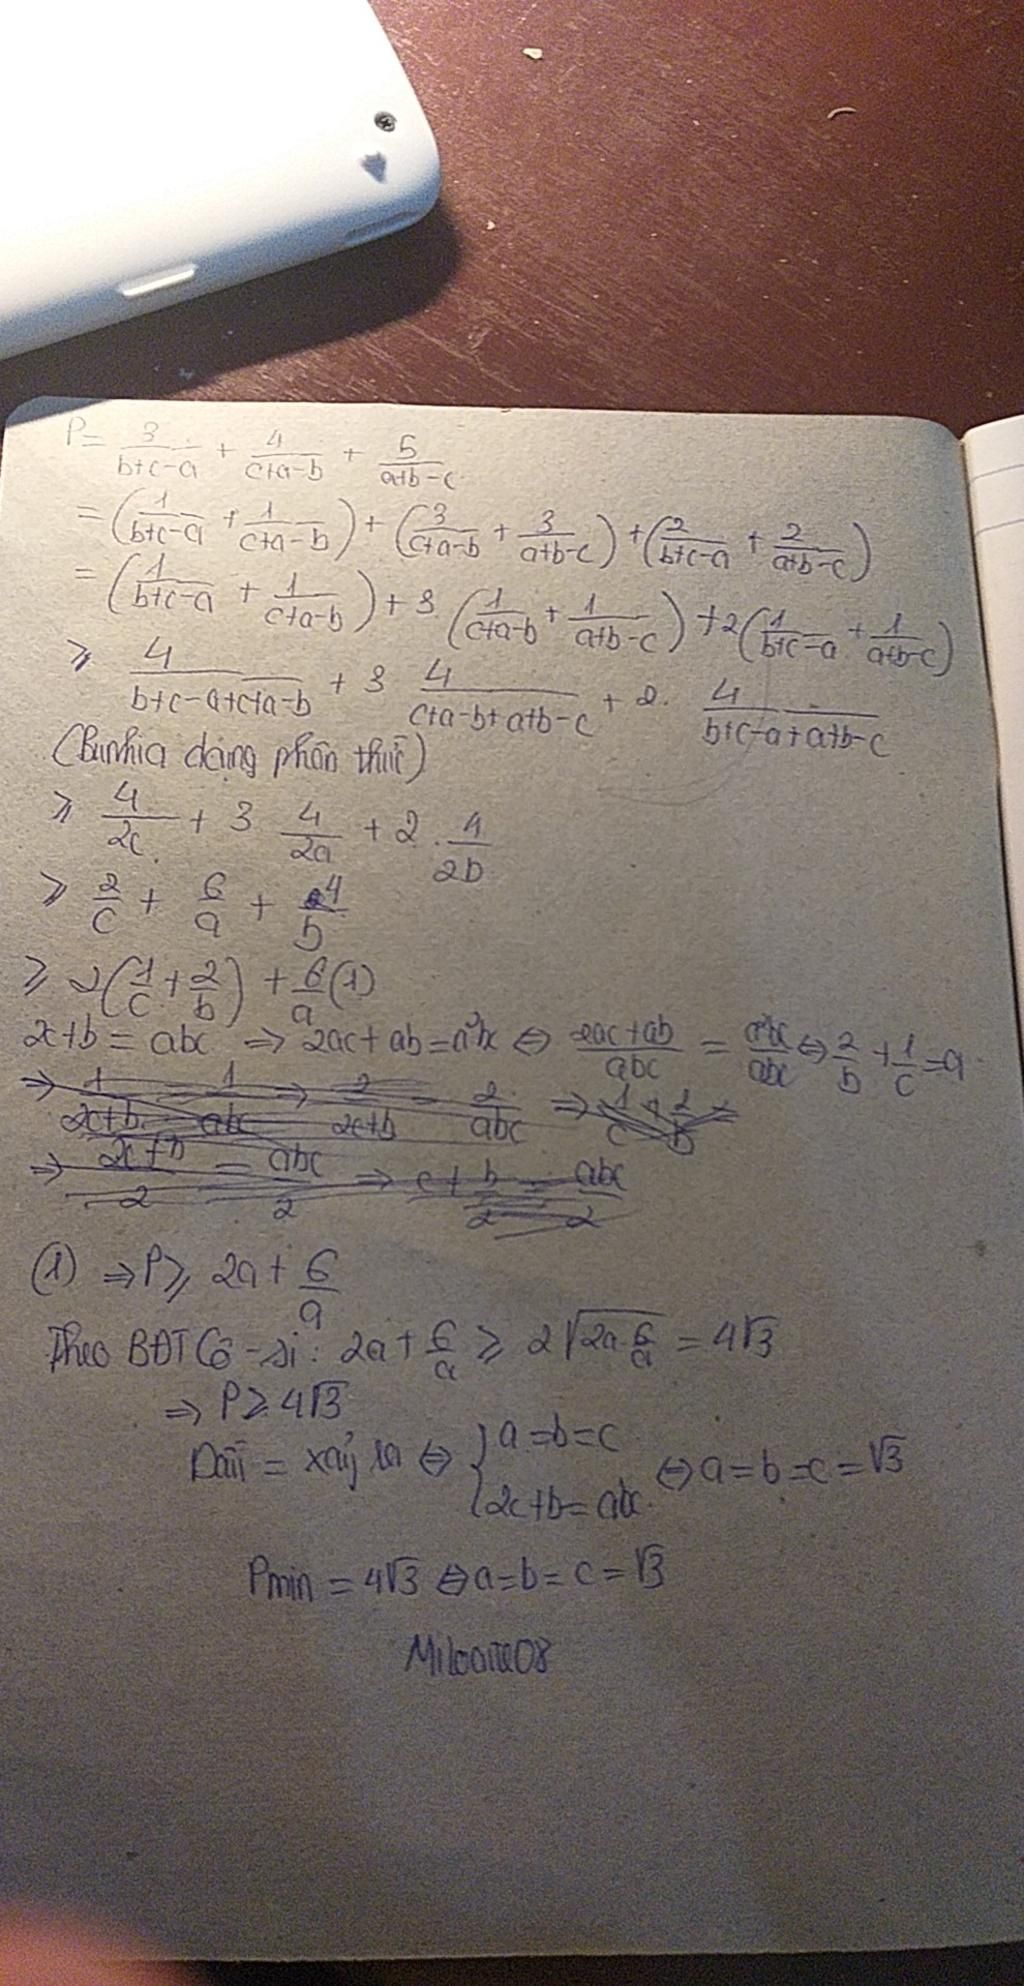 P = 3/(b+c-a) + 4/(c+a-b) + 5/(a+b-c)
= (1/(b+c-a) + 1/(c+a-b)) + (3/(c+a-b) + 3/(a+b-c)) + (2/(b+c-a) + 2/(a+b-c))
= (1/(b+c-a) + 1/(c+a-b)) + 3.(1/(c+a-b) + 1/(a+b-c)) + 2(1/(b+c-a) + 1/(a+b-c))
≥ 4/(b+c-a+c+a-b) + 3 4/(c+a-b+a+b-c) + 2. 4/(b+c-a+a+b-c)
(Bunhia dạng phân thức)
≥ 4/2c + 3 4/2a + 2. 4/2b
≥ 2/c + 6/a + 4/b
≥ 2(1/c + 2/b) + 6/a (1)
2c+b = abc ⇒ 2ac+ab = a²bc ⇔ (2ac+ab)/abc = a²bc/abc ⇔ 2/b + 1/c = a
⇒ 1/(2c+b) = 1/abc ⇒ 2/(2c+b) = 2/abc
⇒ (2c+b)/2 = abc/2 ⇒ c + b/2 = abc/2
(1) ⇒ P ≥ 2a + 6/a
Theo BĐT Cô-si: 2a + 6/a ≥ 2√(2a.6/a) = 4√3
⇒ P ≥ 4√3
Dấu = xảy ra ⇔ { a=b=c
2c+b=abc ⇔ a=b=c=√3
Pmin = 4√3 ⇔ a=b=c=√3